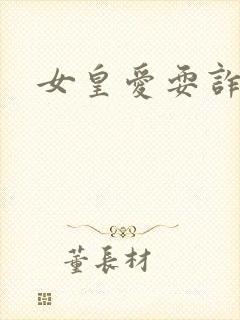 女皇愛耍詐
董長材